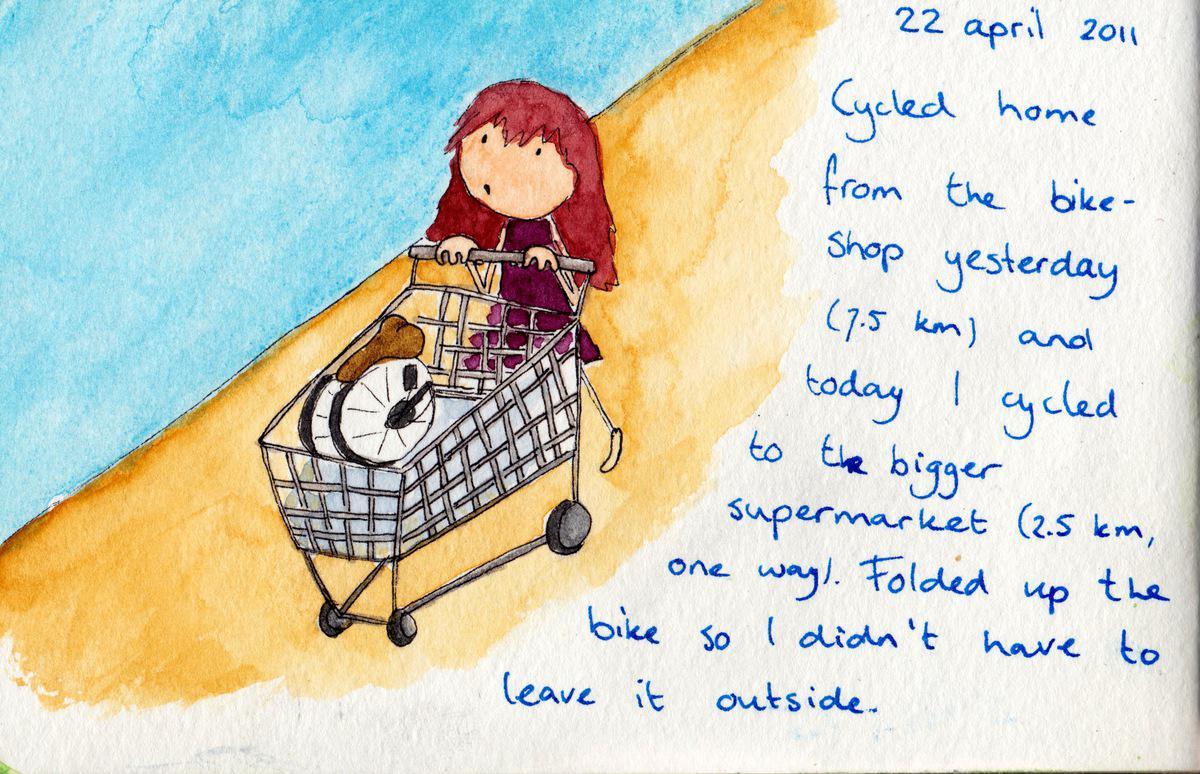 22 april 2011
Cycled home
from the bike-
shop yesterday
(7.5 km) and
today I cycled
to the bigger
supermarket (2.5 km,
one way). Folded up the
bike so I didn't have to
leave it outside.